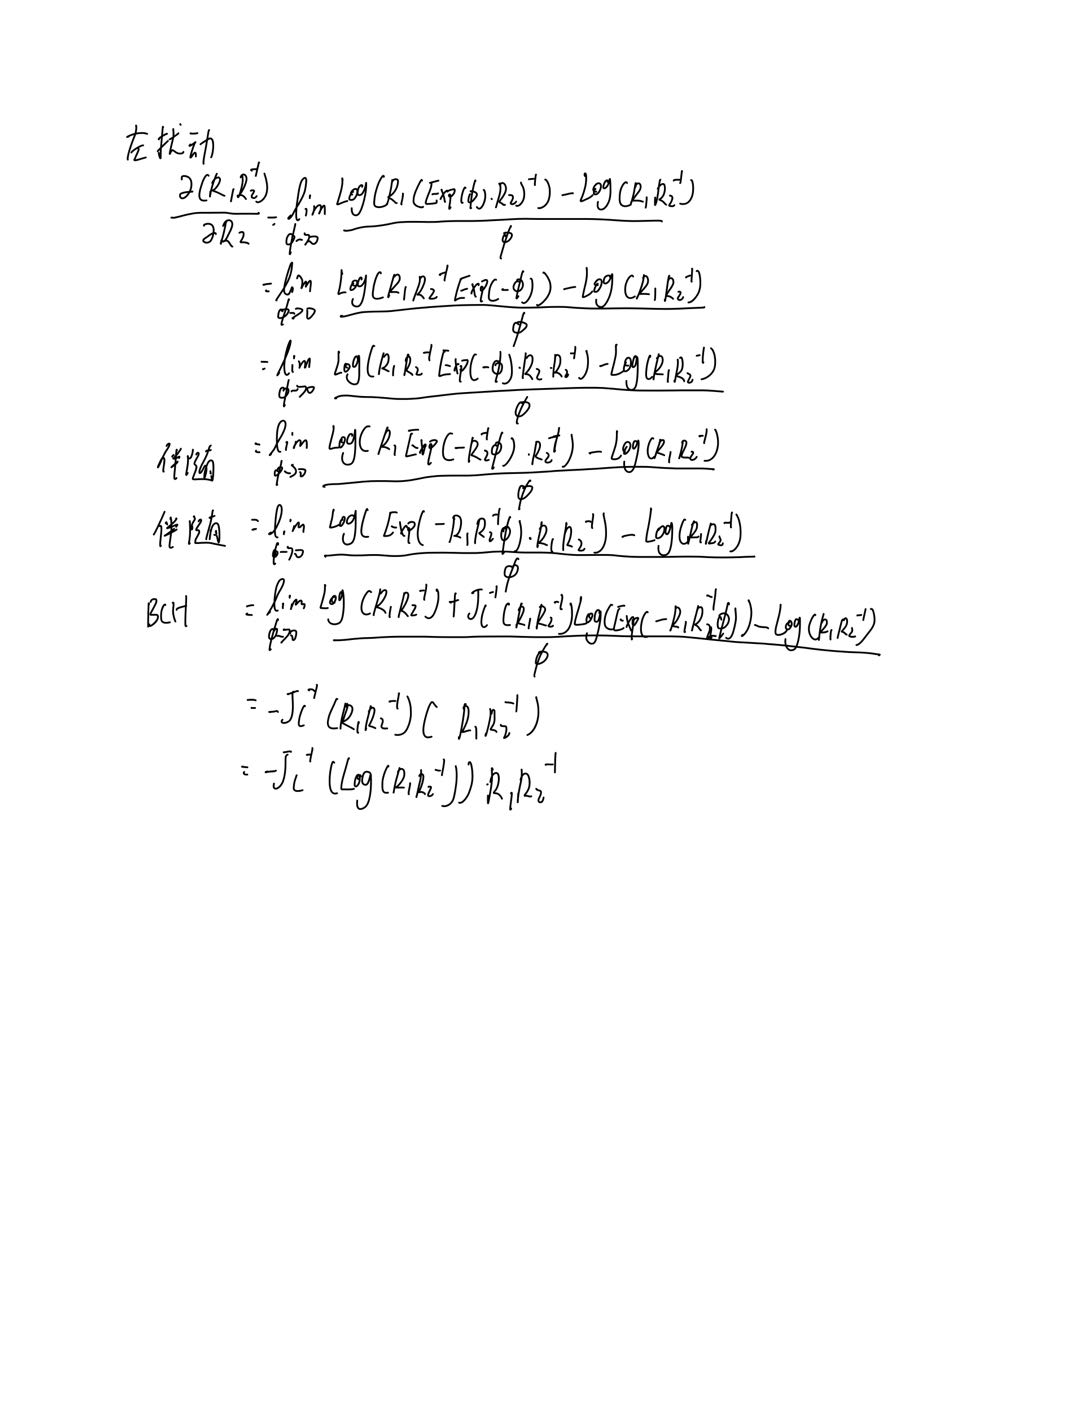 左扰动
∂(R₁R₂⁻¹)/∂R₂ = lim_{ϕ→0} (Log(R₁(Exp(ϕ)·R₂)⁻¹) − Log(R₁R₂⁻¹))/ϕ
= lim_{ϕ→0} (Log(R₁R₂⁻¹Exp(−ϕ)) − Log(R₁R₂⁻¹))/ϕ
= lim_{ϕ→0} (Log(R₁R₂⁻¹Exp(−ϕ)·R₂·R₂⁻¹) − Log(R₁R₂⁻¹))/ϕ
伴随 = lim_{ϕ→0} (Log(R₁Exp(−R₂⁻¹ϕ)·R₂⁻¹) − Log(R₁R₂⁻¹))/ϕ
伴随 = lim_{ϕ→0} (Log(Exp(−R₁R₂⁻¹ϕ)·R₁R₂⁻¹) − Log(R₁R₂⁻¹))/ϕ
BCH = lim_{ϕ→0} (Log(R₁R₂⁻¹) + J_l⁻¹(R₁R₂⁻¹)Log(Exp(−R₁R₂⁻¹ϕ)) − Log(R₁R₂⁻¹))/ϕ
= −J_l⁻¹(R₁R₂⁻¹)(R₁R₂⁻¹)
= −J_l⁻¹(Log(R₁R₂⁻¹))·R₁R₂⁻¹